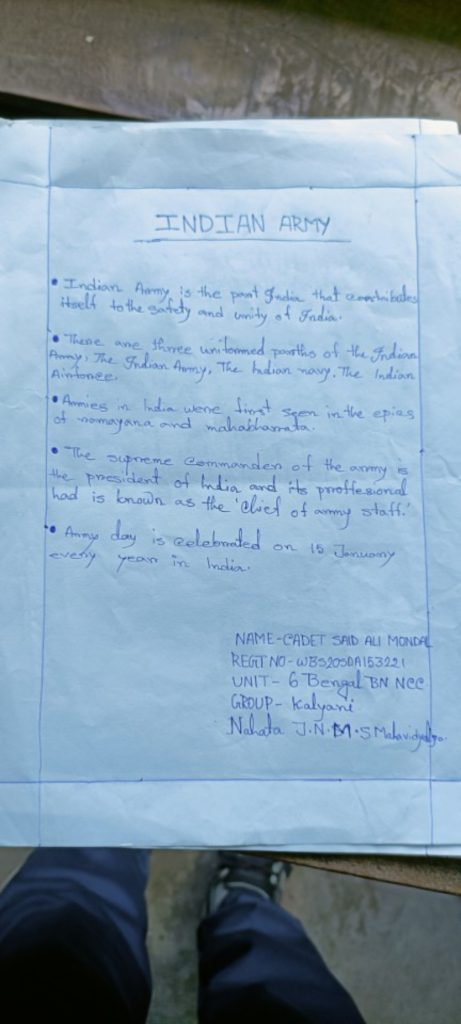 INDIAN ARMY
• Indian Army is the part India that contributes
itself to the safety and unity of India.
• There are three uniformed parths of the Indian
Army, The Indian Army, The Indian navy, The Indian
Airforce.
• Armies in India were first seen in the epics
of ramayana and mahabharrata.
• The supreme commander of the army is
the president of India and its proffessional
had is known as the 'Chief of army staff.'
• Army day is celebrated on 15 January
every year in India.
NAME-CADET SAID ALI MONDAL
REGT NO-WBS20SDA153221
UNIT- 6 Bengal BN NCC
GROUP- Kalyani
Nahata J.N.M.S Mahavidyalya.